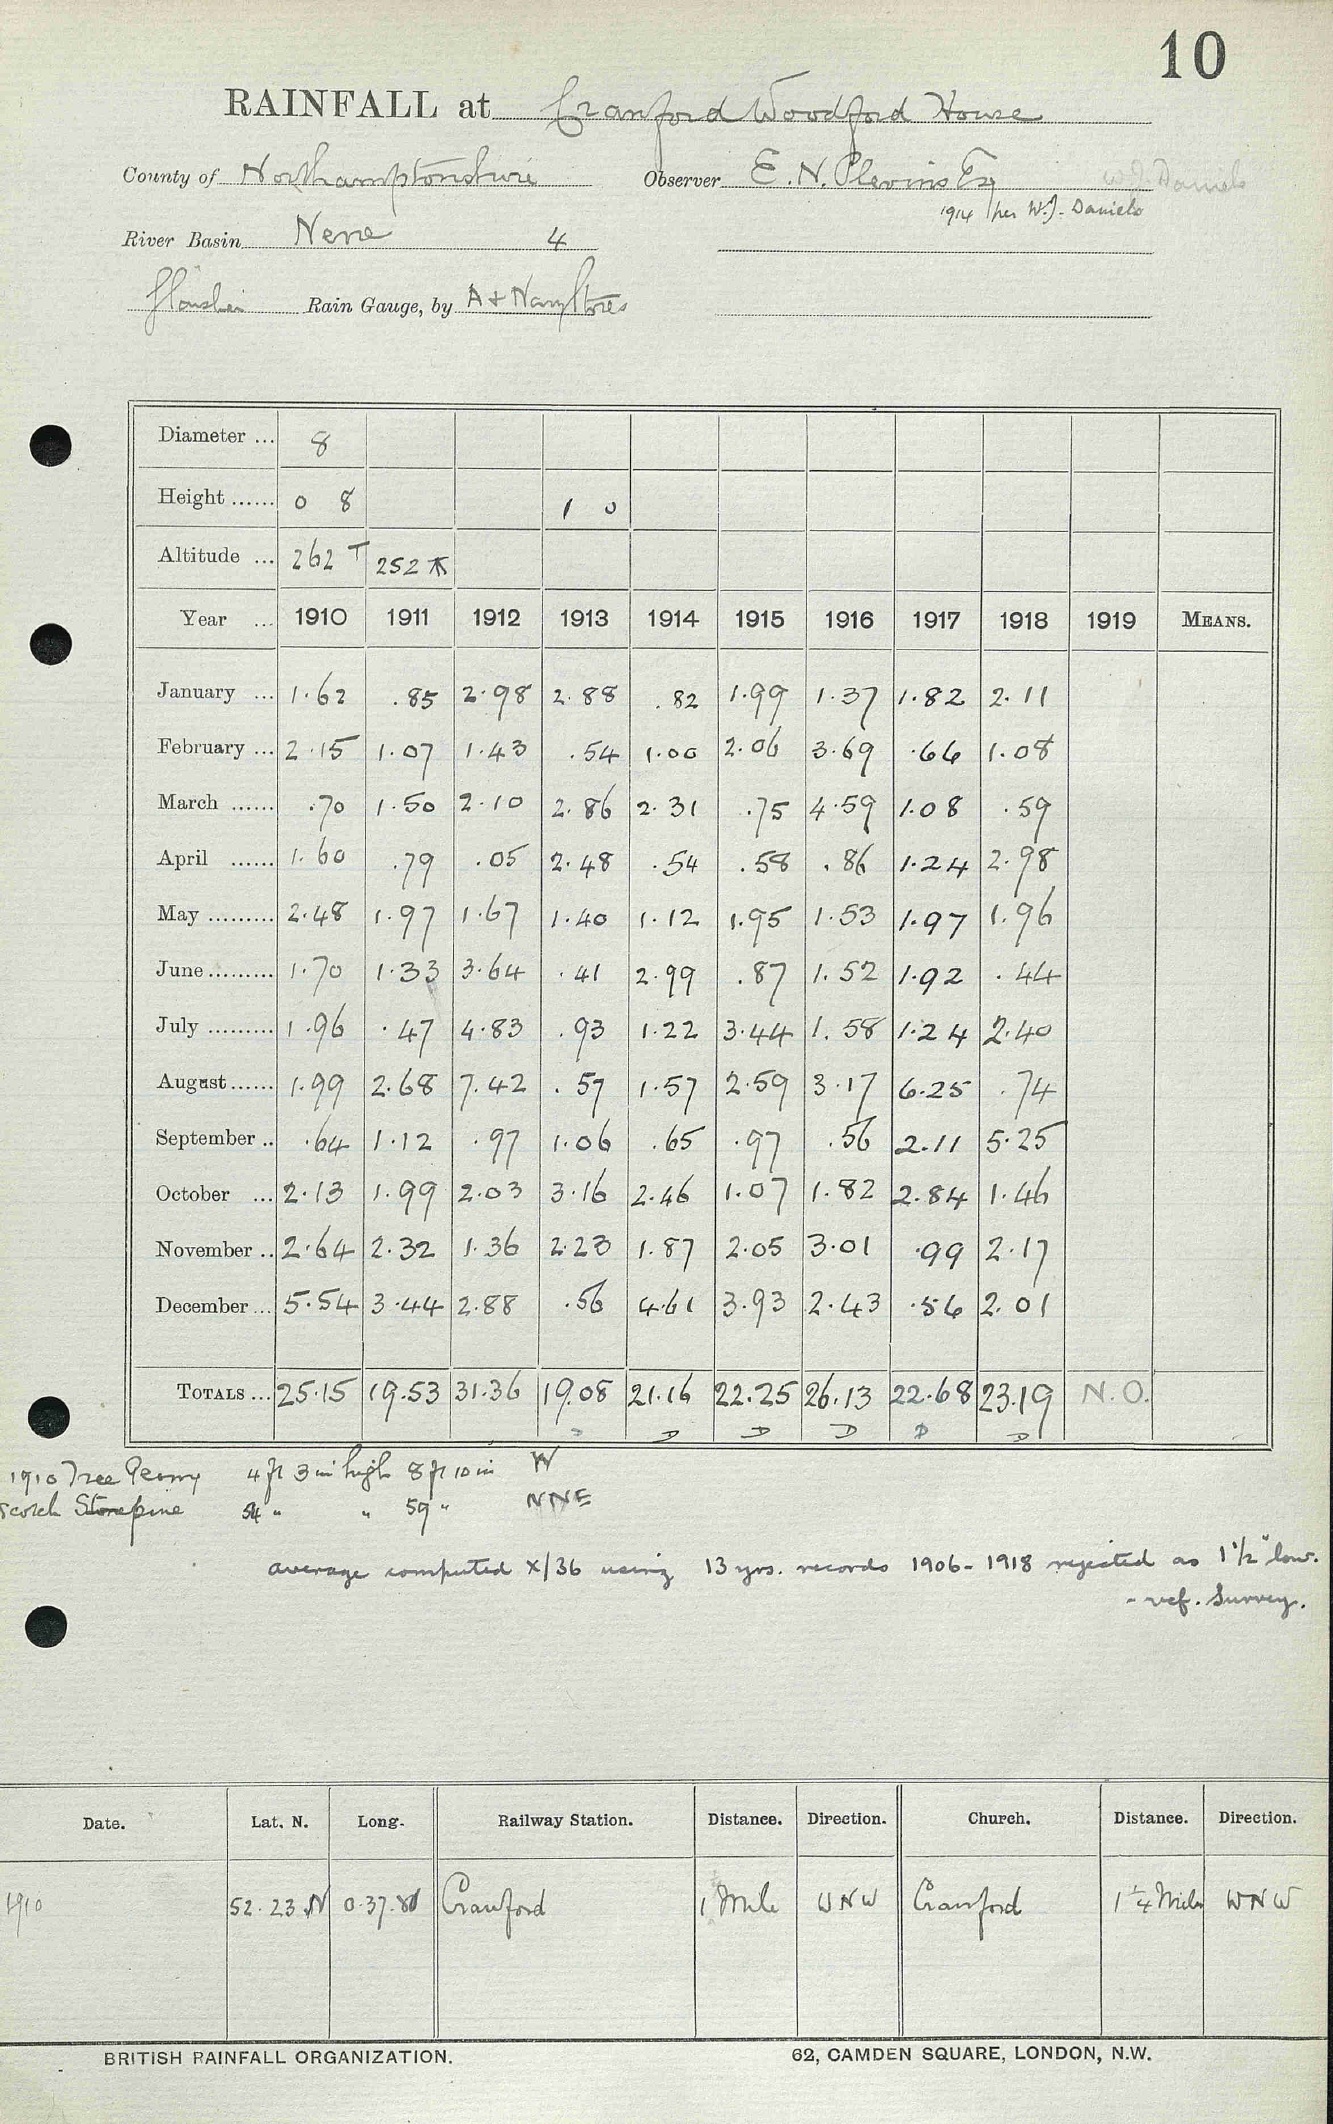 10
RAINFALL at Cranford Woodford House
County of Northamptonshire Observer E. N. Plevins Esq W. J. Daniels
1914 per W. J. Daniels
River Basin Nene 4
Rain Gauge, by A & Navy Stores
Diameter ... 8
Height ...... 0 8 1 0
Altitude ... 262 T 252
Year ... 1910 1911 1912 1913 1914 1915 1916 1917 1918 1919 MEANS.
January ... 1.62 .85 2.98 2.88 .82 1.99 1.37 1.82 2.11
February ... 2.15 1.07 1.43 .54 1.00 2.06 3.69 .66 1.08
March ...... .70 1.50 2.10 2.86 2.31 .75 4.59 1.08 .59
April ...... 1.60 .79 .05 2.48 .54 .58 .86 1.24 2.98
May ......... 2.48 1.97 1.67 1.40 1.12 1.95 1.53 1.97 1.96
June ......... 1.70 1.33 3.64 .41 2.99 .87 1.52 1.92 .44
July ......... 1.96 .47 4.83 .93 1.22 3.44 1.58 1.24 2.40
August ...... 1.99 2.68 7.42 .57 1.57 2.59 3.17 6.25 .74
September .. .64 1.12 .97 1.06 .65 .97 .56 2.11 5.25
October ... 2.13 1.99 2.03 3.16 2.46 1.07 1.82 2.84 1.46
November .. 2.64 2.32 1.36 2.23 1.87 2.05 3.01 .99 2.17
December ... 5.54 3.44 2.88 .56 4.61 3.93 2.43 .56 2.01
TOTALS ... 25.15 19.53 31.36 19.08 21.16 22.25 26.13 22.68 23.19 N.O.
D D D D D D
1910 Tree Peony 4 ft 3 in high 8 ft 10 in W
Scotch Stone pine 54 " " 59 " NNE
average computed x/36 using 13 yrs. records 1906-1918 rejected as 1 1/2" low.
- ref. Survey.
Date. Lat. N. Long. Railway Station. Distance. Direction. Church. Distance. Direction.
1910 52.23 N 0.37.W Cranford 1 Mile WNW Cranford 1 1/4 Miles WNW
BRITISH RAINFALL ORGANIZATION. 62, CAMDEN SQUARE, LONDON, N.W.